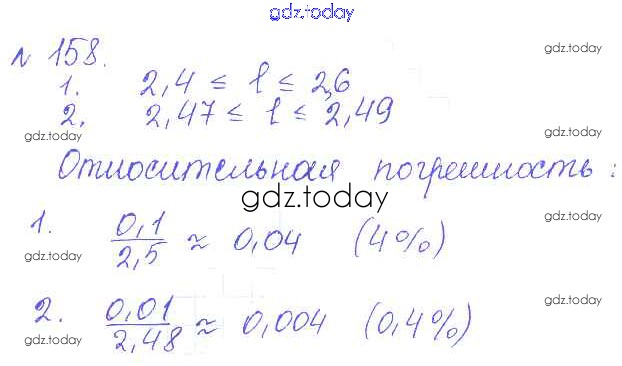 gdz.today
№ 158.
gdz.today
1. 2,4 ≤ l ≤ 2,6
2. 2,47 ≤ l ≤ 2,49
gdz.today
gdz.today
Относительная погрешность:
gdz.today
1. 0,1/2,5 ≈ 0,04 (4%)
gdz.today
gdz.today
2. 0,01/2,48 ≈ 0,004 (0,4%)
gdz.today
gdz.today